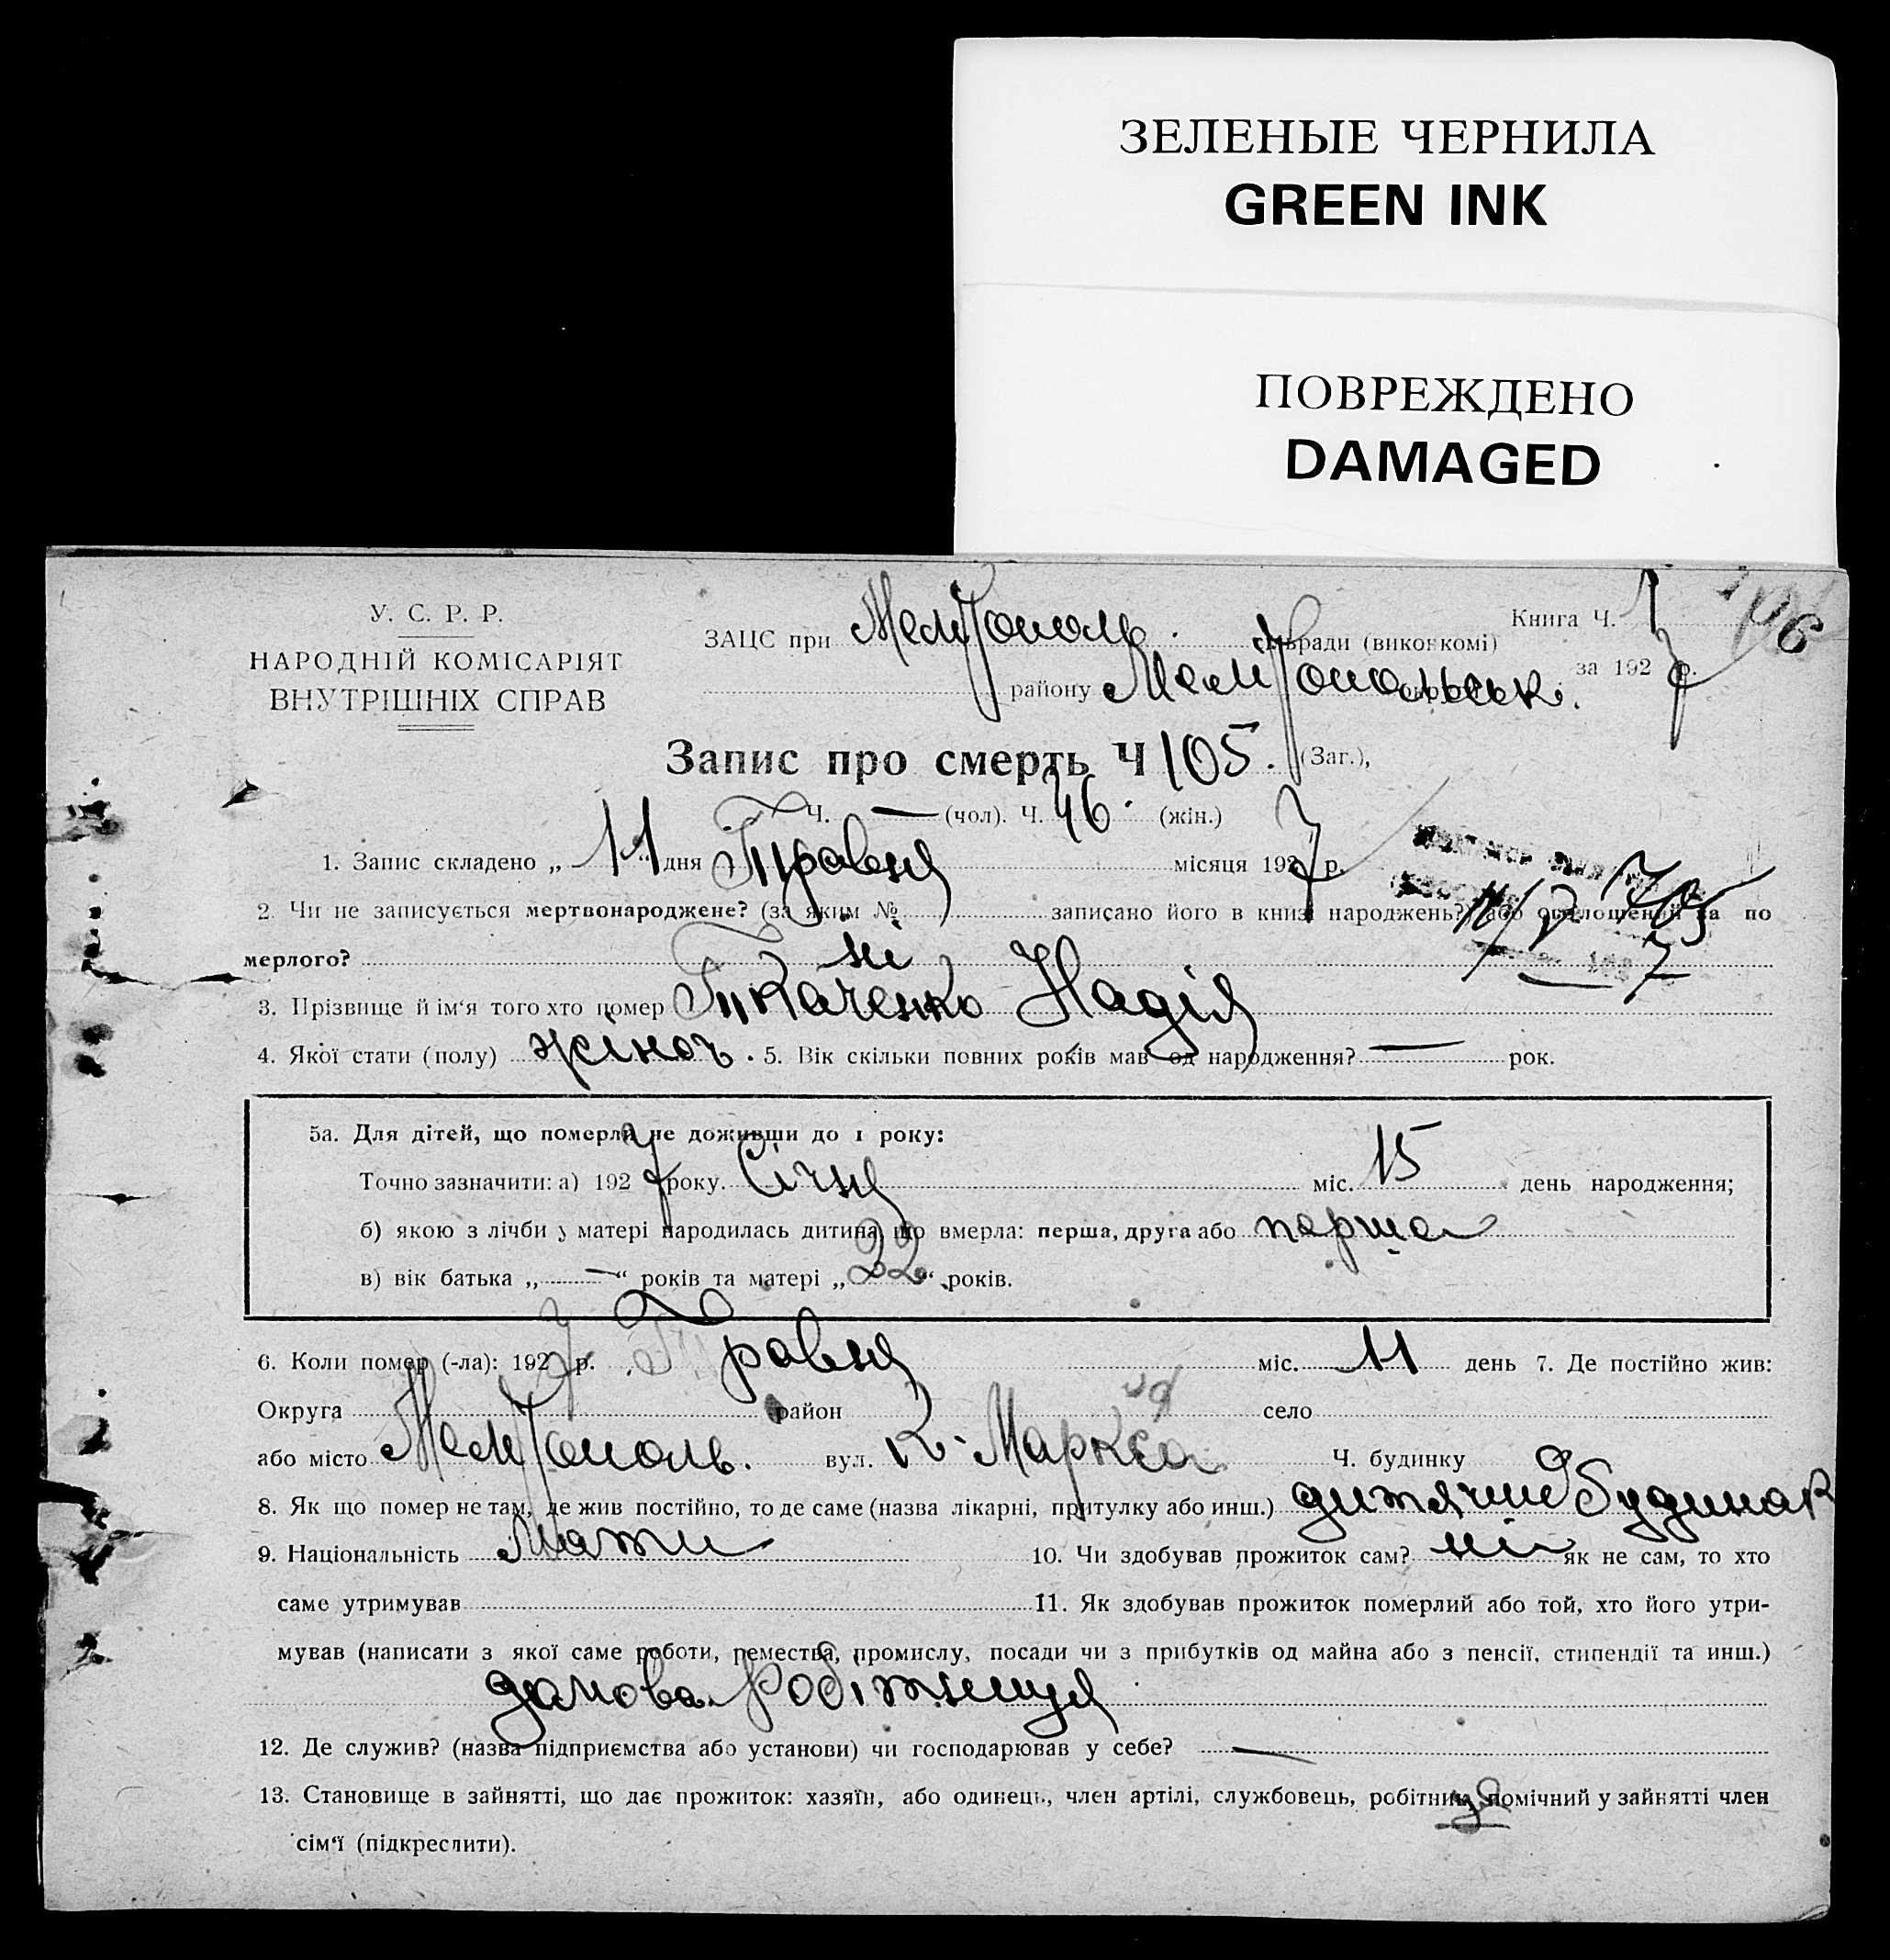 ЗЕЛЕНЫЕ ЧЕРНИЛА
GREEN INK
ПОВРЕЖДЕНО
DAMAGED
У. С. Р. Р.
НАРОДНІЙ КОМІСАРІЯТ
ВНУТРІШНІХ СПРАВ
106
Книга Ч. 1
за 1927 р.
ЗАЦС при Мелітополь. ради (виконкомі)
району Мелітопольськ.
Запис про смерть Ч 105. (Заг.),
Ч. — (чол). Ч. 46. (жін.)
1. Запис складено „ 11 “ дня Травня місяця 1927 р.
2. Чи не записується мертвонароджене? (за яким № записано його в книзі народжень?) або оголошений за по
мерлого? ні
11/V 705
7
3. Прізвище й ім'я того хто помер Ткаченко Надія
4. Якої стати (полу) жіноч. 5. Вік скільки повних років мав од народження? — рок.
5а. Для дітей, що померли не доживши до 1 року:
Точно зазначити: а) 1927 року. Січня міс. 15 день народження;
б) якою з лічби у матері народилась дитина, що вмерла: перша, друга або перша
в) вік батька „ — “ років та матері „ 22 “ років.
6. Коли помер (-ла): 1927 р. Травня міс. 11 день 7. Де постійно жив:
Округа район село
або місто Мелітополь. вул. К. Маркса Ч. будинку
8. Як що помер не там, де жив постійно, то де саме (назва лікарні, притулку або инш.) дитячий будинок
9. Національність Мати 10. Чи здобував прожиток сам? ні як не сам, то хто
саме утримував 11. Як здобував прожиток померлий або той, хто його утри-
мував (написати з якої саме роботи, ремества, промислу, посади чи з прибутків од майна або з пенсії, стипендії та инш.)
домова робітниця
12. Де служив? (назва підприємства або установи) чи господарював у себе? —
13. Становище в зайнятті, що дає прожиток: хазяїн, або одинець, член артілі, службовець, робітник, помічний у зайнятті член
сім'ї (підкреслити).